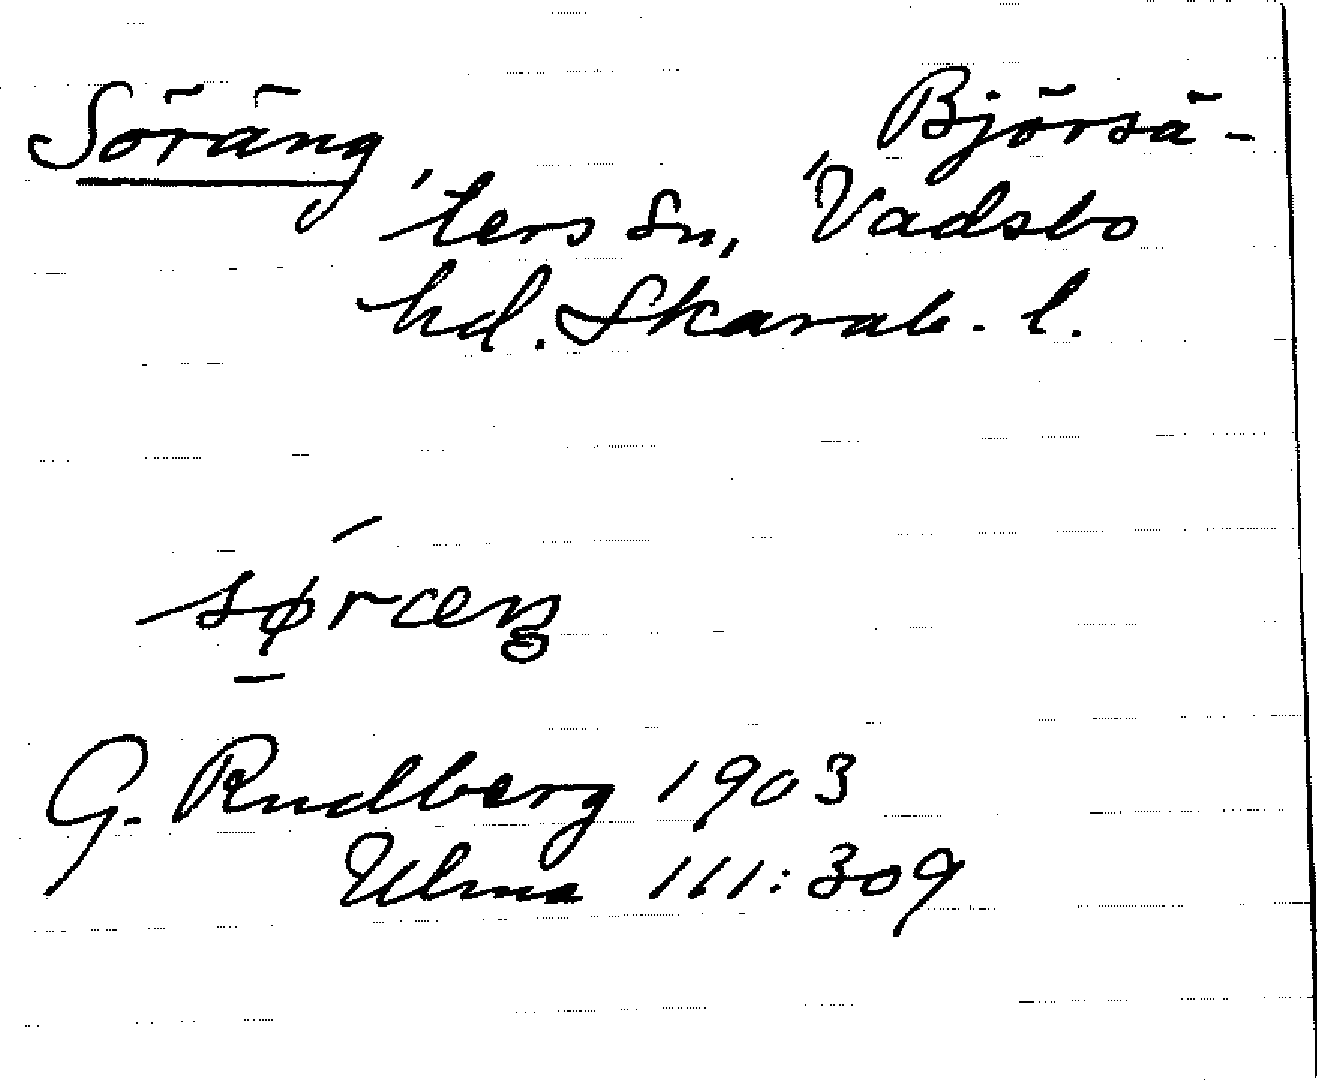 Söräng Björsä-
ters sn, Vadsbo
hd. Skarab. l.
sø̱ræŋ
G. Rudberg 1903
Ulma 111:309